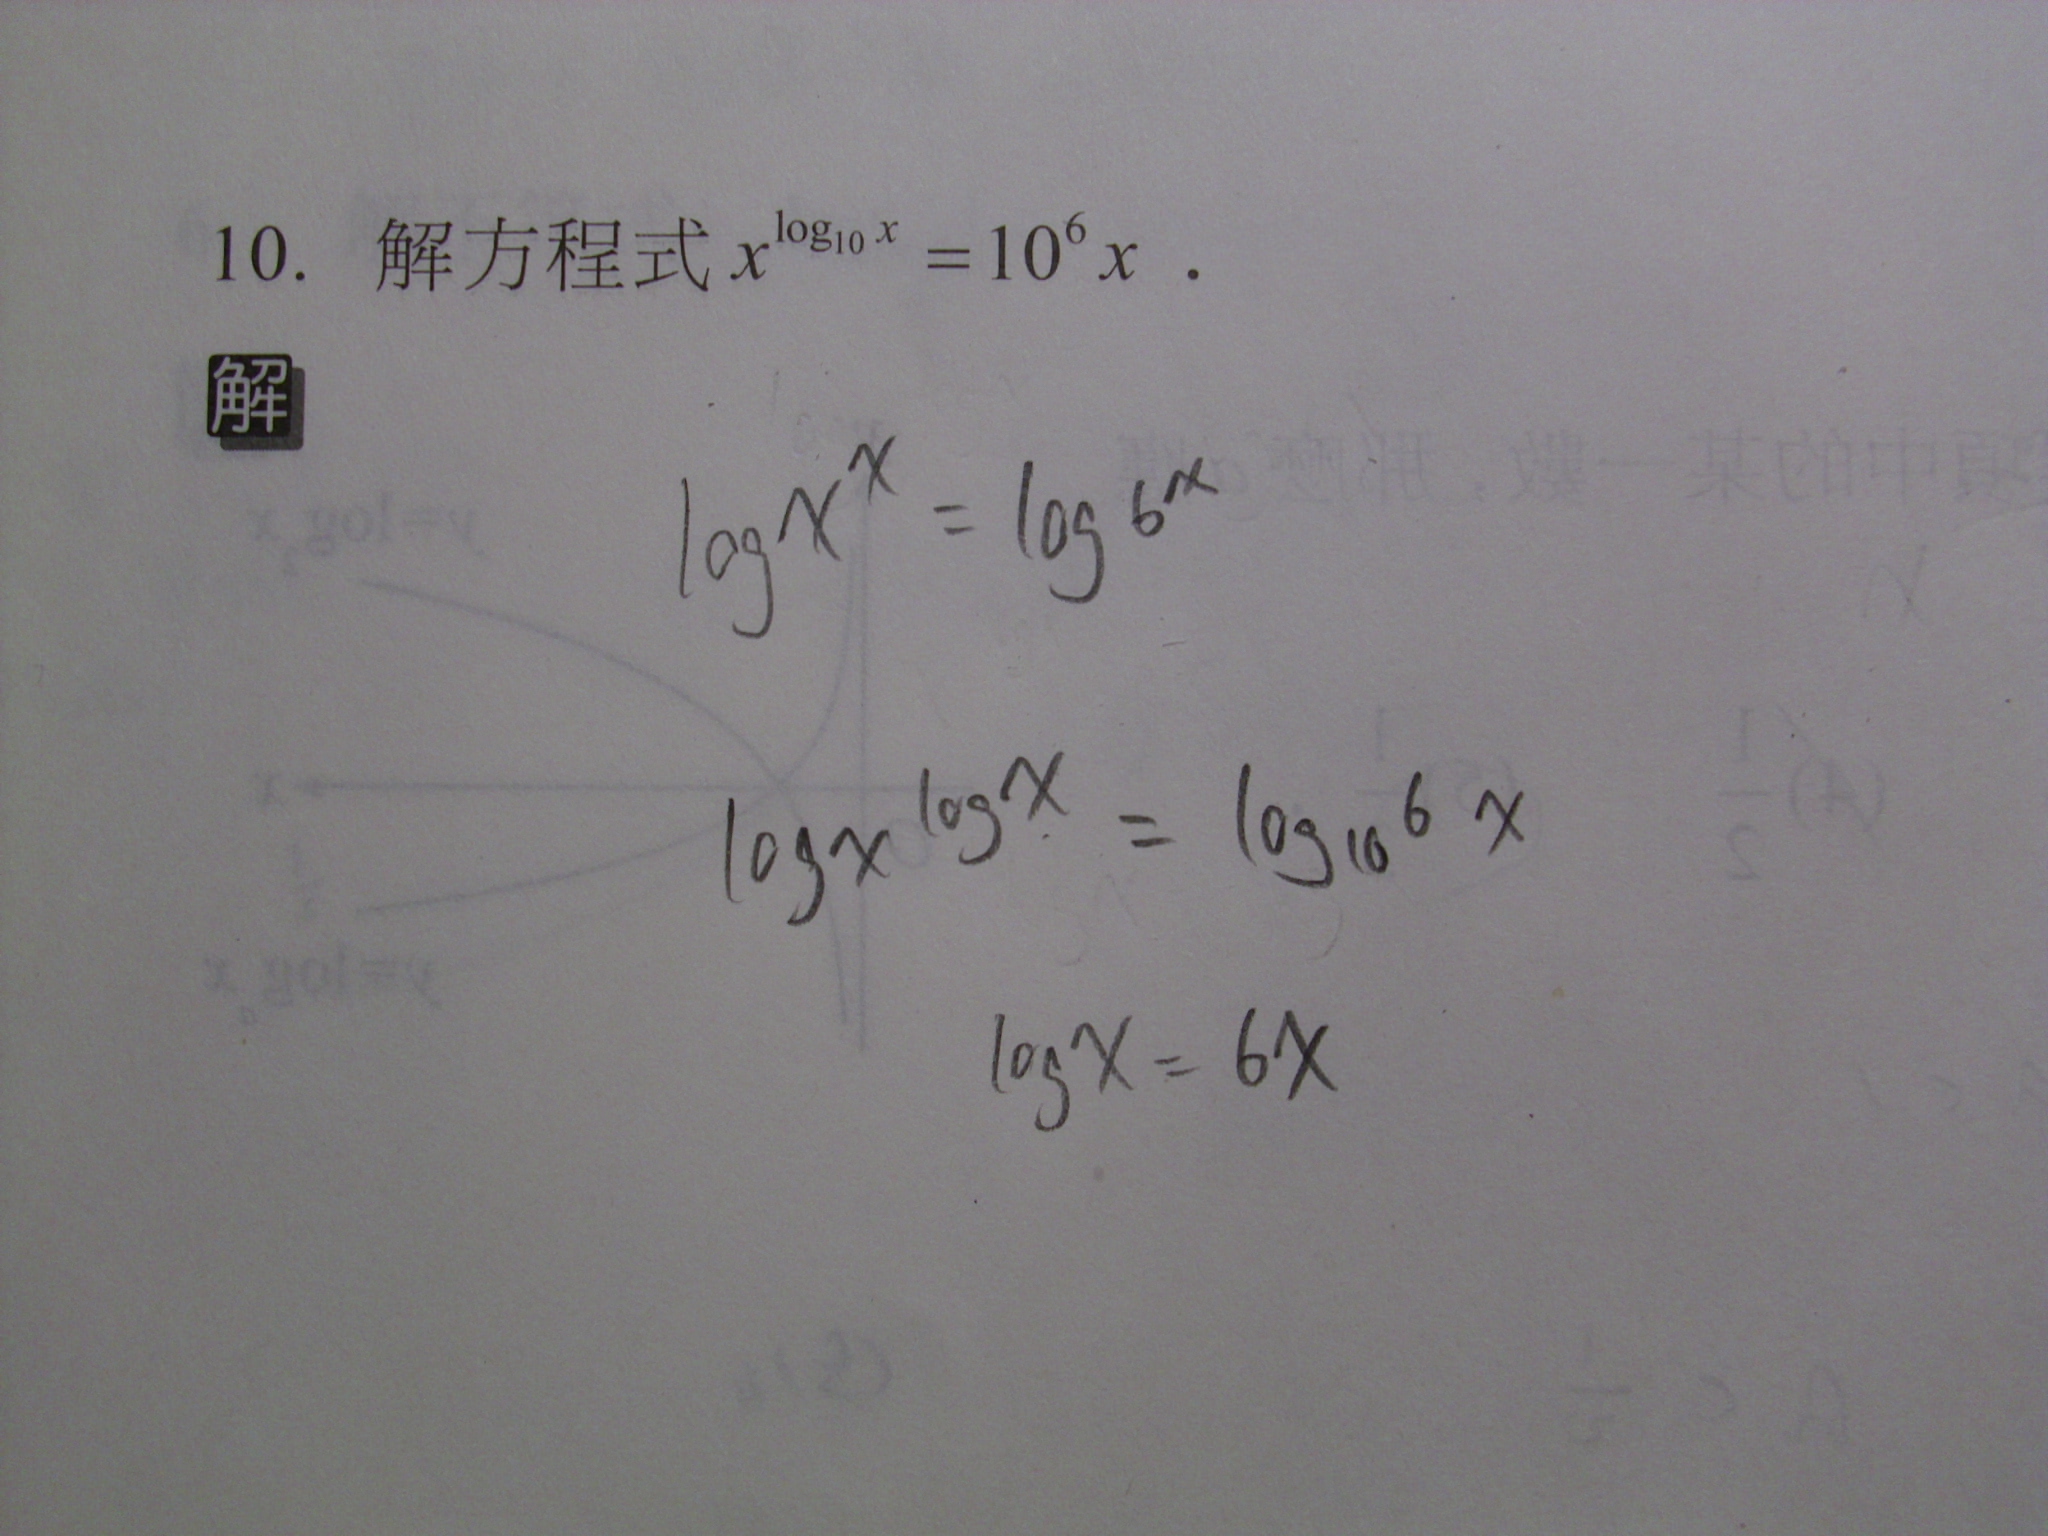 10. 解方程式 x^{log_{10} x} = 10^6 x .
解
log x^x = log 6^x
log x^{log x} = log_{10} 6 x
log x = 6x